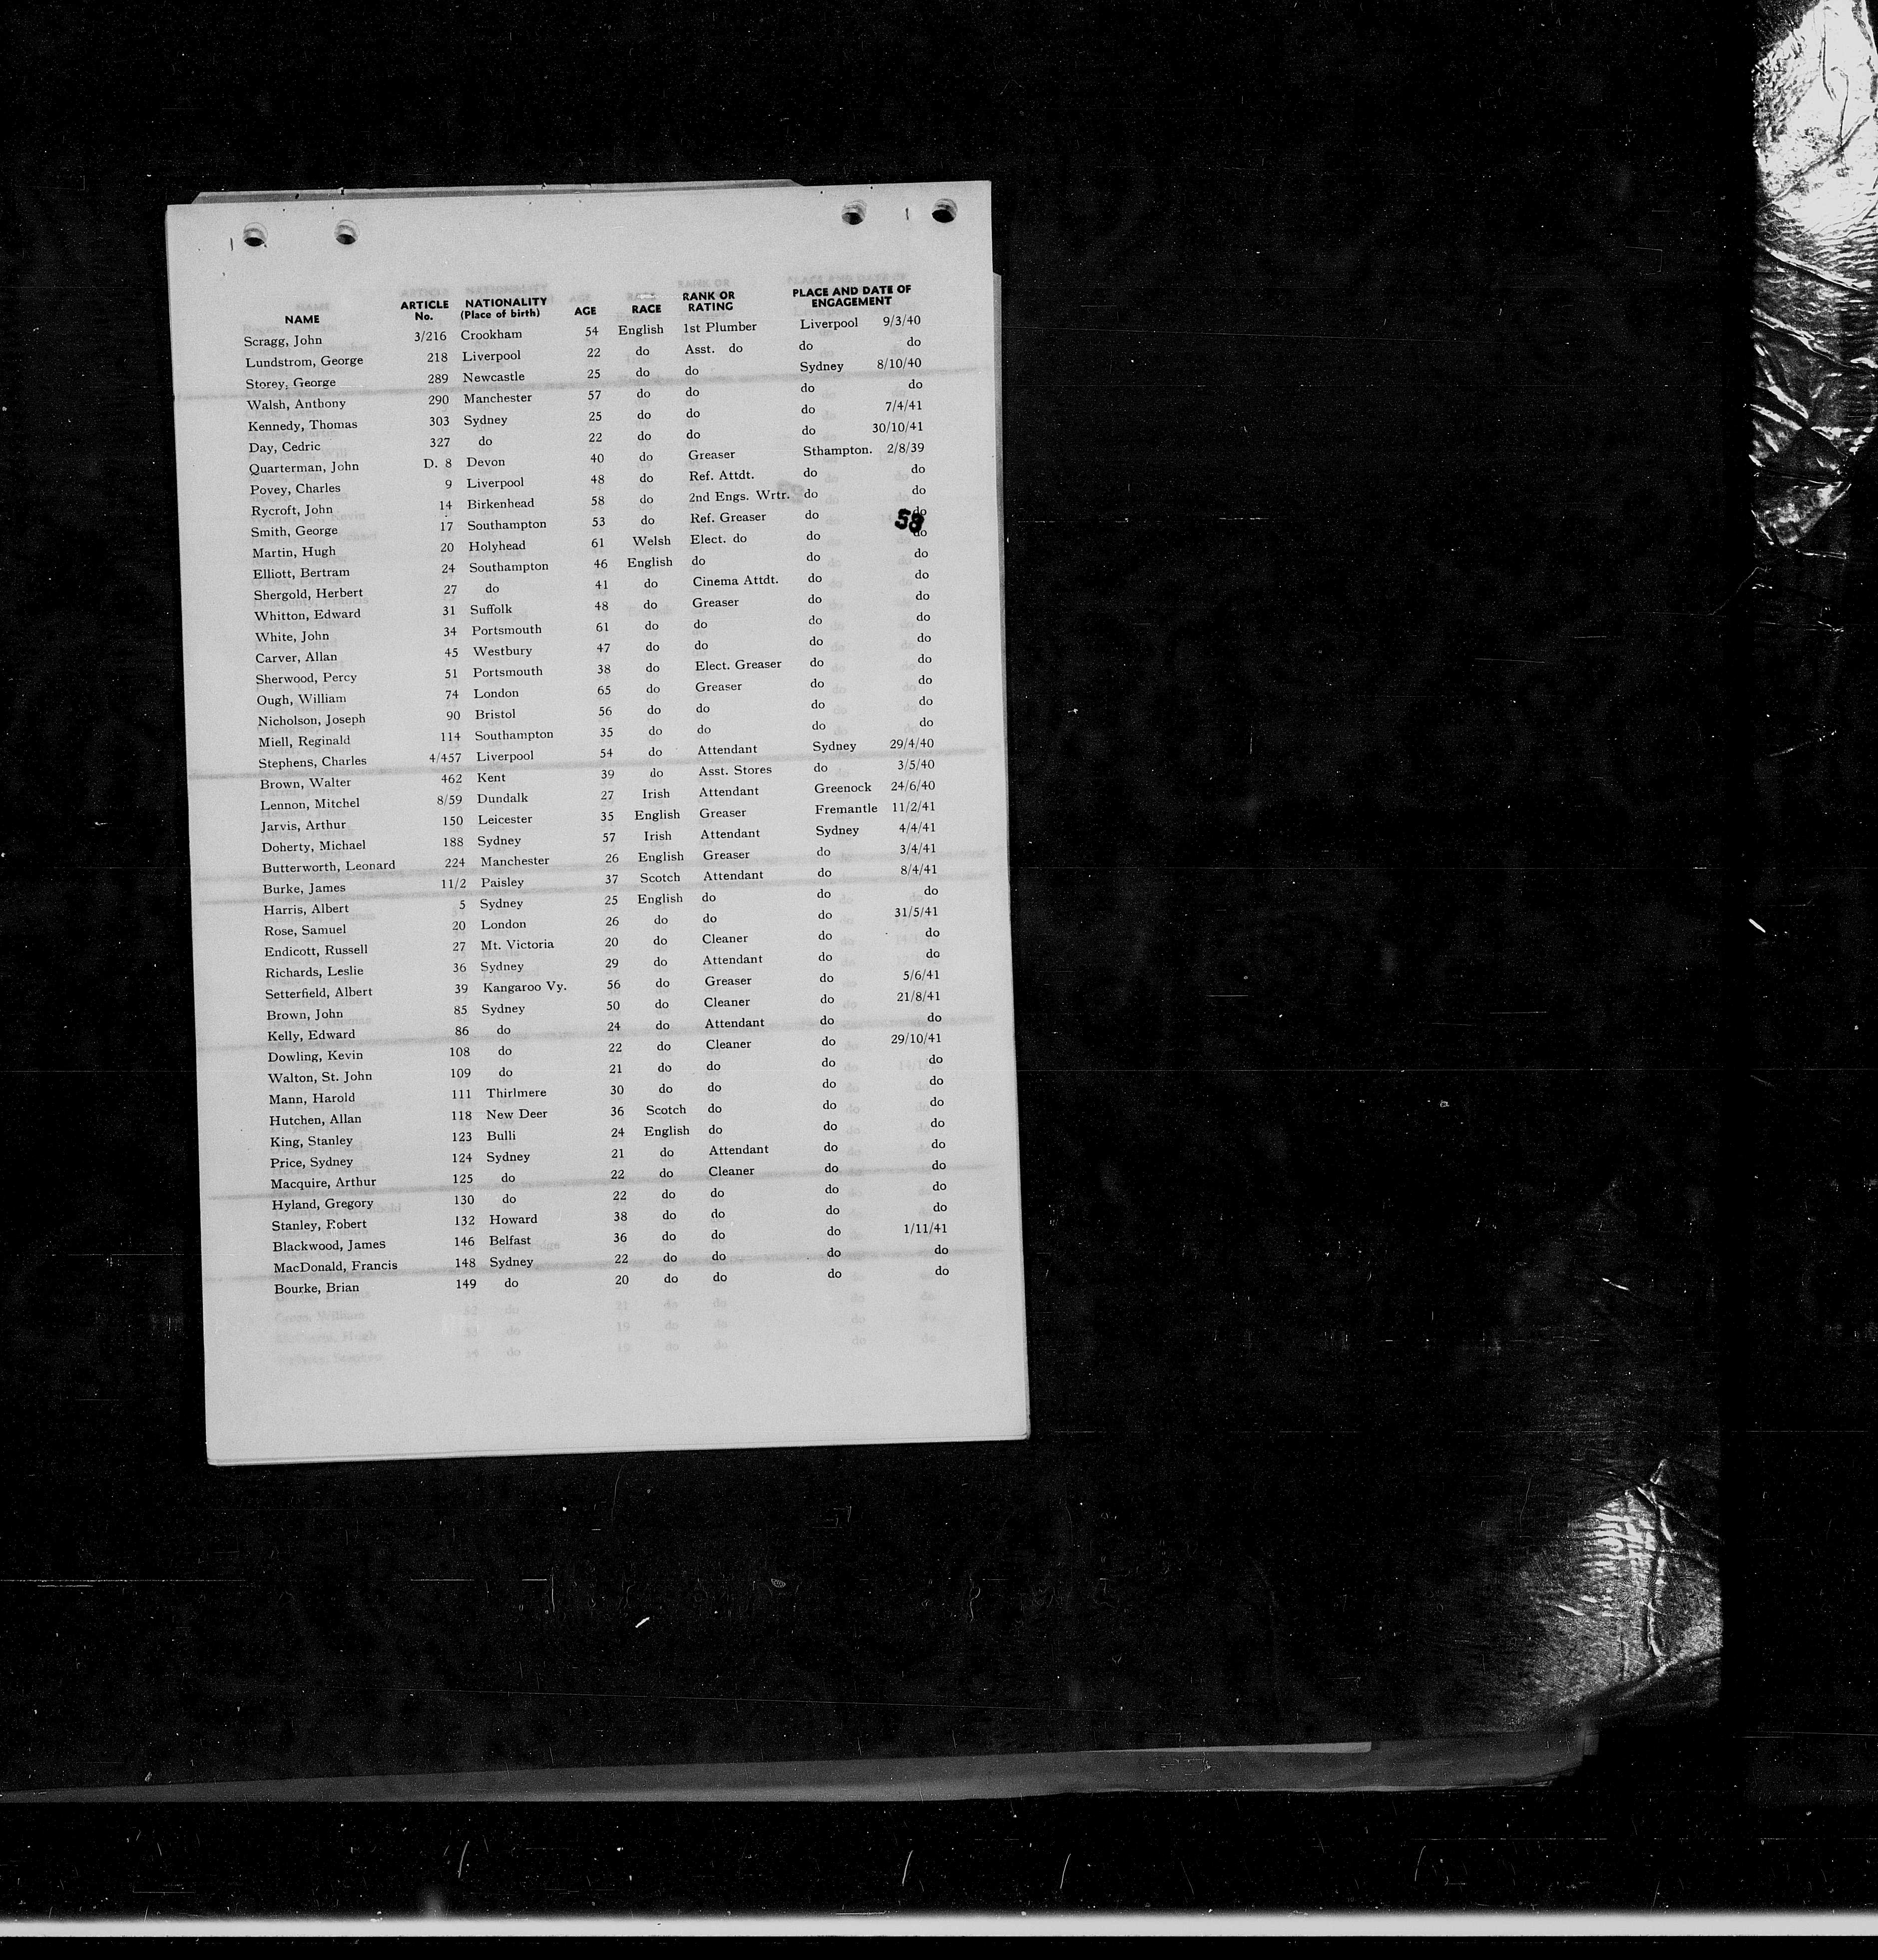 NAME ARTICLE No. NATIONALITY (Place of birth) AGE RACE RANK OR RATING PLACE AND DATE OF ENGAGEMENT
Scragg, John 3/216 Crookham 54 English 1st Plumber Liverpool 9/3/40
Lundstrom, George 218 Liverpool 22 do Asst. do do do
Storey, George 289 Newcastle 25 do do Sydney 8/10/40
Walsh, Anthony 290 Manchester 57 do do do do
Kennedy, Thomas 303 Sydney 25 do do do 7/4/41
Day, Cedric 327 do 22 do do do 30/10/41
Quarterman, John D. 8 Devon 40 do Greaser Sthampton. 2/8/39
Povey, Charles 9 Liverpool 48 do Ref. Attdt. do do
Rycroft, John 14 Birkenhead 58 do 2nd Engs. Wrtr. do do
Smith, George 17 Southampton 53 do Ref. Greaser do do
58
Martin, Hugh 20 Holyhead 61 Welsh Elect. do do do
Elliott, Bertram 24 Southampton 46 English do do do
Shergold, Herbert 27 do 41 do Cinema Attdt. do do
Whitton, Edward 31 Suffolk 48 do Greaser do do
White, John 34 Portsmouth 61 do do do do
Carver, Allan 45 Westbury 47 do do do do
Sherwood, Percy 51 Portsmouth 38 do Elect. Greaser do do
Ough, William 74 London 65 do Greaser do do
Nicholson, Joseph 90 Bristol 56 do do do do
Miell, Reginald 114 Southampton 35 do do do do
Stephens, Charles 4/457 Liverpool 54 do Attendant Sydney 29/4/40
Brown, Walter 462 Kent 39 do Asst. Stores do 3/5/40
Lennon, Mitchel 8/59 Dundalk 27 Irish Attendant Greenock 24/6/40
Jarvis, Arthur 150 Leicester 35 English Greaser Fremantle 11/2/41
Doherty, Michael 188 Sydney 57 Irish Attendant Sydney 4/4/41
Butterworth, Leonard 224 Manchester 26 English Greaser do 3/4/41
Burke, James 11/2 Paisley 37 Scotch Attendant do 8/4/41
Harris, Albert 5 Sydney 25 English do do do
Rose, Samuel 20 London 26 do do do 31/5/41
Endicott, Russell 27 Mt. Victoria 20 do Cleaner do do
Richards, Leslie 36 Sydney 29 do Attendant do do
Setterfield, Albert 39 Kangaroo Vy. 56 do Greaser do 5/6/41
Brown, John 85 Sydney 50 do Cleaner do 21/8/41
Kelly, Edward 86 do 24 do Attendant do do
Dowling, Kevin 108 do 22 do Cleaner do 29/10/41
Walton, St. John 109 do 21 do do do do
Mann, Harold 111 Thirlmere 30 do do do do
Hutchen, Allan 118 New Deer 36 Scotch do do do
King, Stanley 123 Bulli 24 English do do do
Price, Sydney 124 Sydney 21 do Attendant do do
Macquire, Arthur 125 do 22 do Cleaner do do
Hyland, Gregory 130 do 22 do do do do
Stanley, Robert 132 Howard 38 do do do do
Blackwood, James 146 Belfast 36 do do do 1/11/41
MacDonald, Francis 148 Sydney 22 do do do do
Bourke, Brian 149 do 20 do do do do